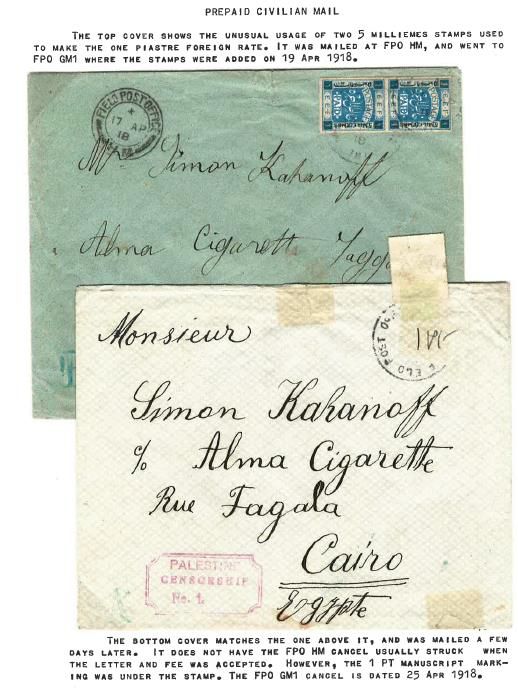 PREPAID CIVILIAN MAIL
THE TOP COVER SHOWS THE UNUSUAL USAGE OF TWO 5 MILLIEMES STAMPS USED
TO MAKE THE ONE PIASTRE FOREIGN RATE. IT WAS MAILED AT FPO HM, AND WENT TO
FPO GM1 WHERE THE STAMPS WERE ADDED ON 19 APR 1918.
FIELD POST OFFICE
17 AP
18
E.E.F. E.E.F.
POSTAGE PAID POSTAGE PAID
Mr Simon Kahanoff
Alma Cigarett Fagga
Monsieur
1 Pt
Simon Kahanoff
c/o Alma Cigarette
Rue Fagala
Cairo
Egypte
PALESTINE
CENSORSHIP
No. 1.
THE BOTTOM COVER MATCHES THE ONE ABOVE IT, AND WAS MAILED A FEW
DAYS LATER. IT DOES NOT HAVE THE FPO HM CANCEL USUALLY STRUCK WHEN
THE LETTER AND FEE WAS ACCEPTED. HOWEVER, THE 1 PT MANUSCRIPT MARK-
ING WAS UNDER THE STAMP. THE FPO GM1 CANCEL IS DATED 25 APR 1918.